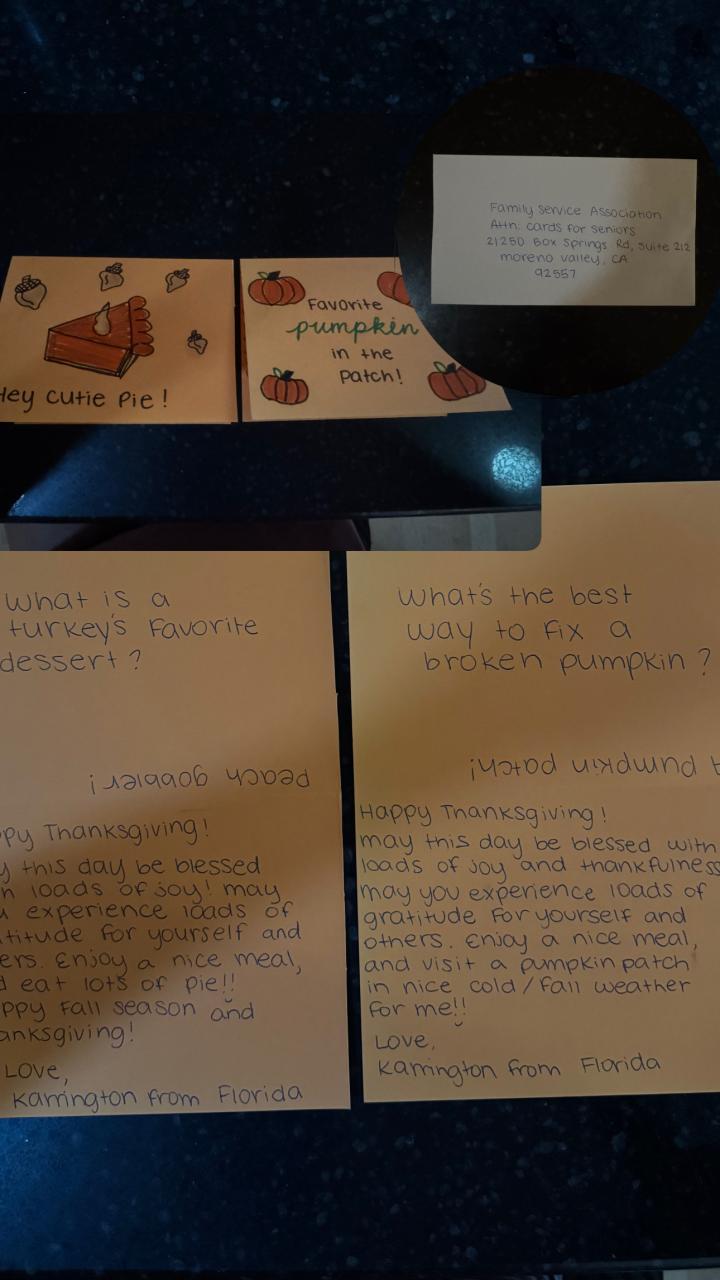 Hey cutie Pie!
Favorite
pumpkin
in the
Patch!
Family service Association
Attn: cards for seniors
21250 Box Springs Rd, Suite 212
moreno valley, CA
92557
what is a
turkey's Favorite
dessert?
Peach gobbler!
Thanksgiving!
this day be blessed
loads of joy! may
experience loads of
for yourself and
Enjoy a nice meal,
eat lots of pie!!
Fall season and
Love,
Karrington from Florida
what's the best
way to fix a
broken pumpkin?
pumpkin patch!
Happy Thanksgiving!
may this day be blessed with
loads of joy and thankfulness
may you experience loads of
gratitude for yourself and
others. Enjoy a nice meal,
and visit a pumpkin patch
in nice cold/fall weather
for me!!
Love,
Karrington from Florida